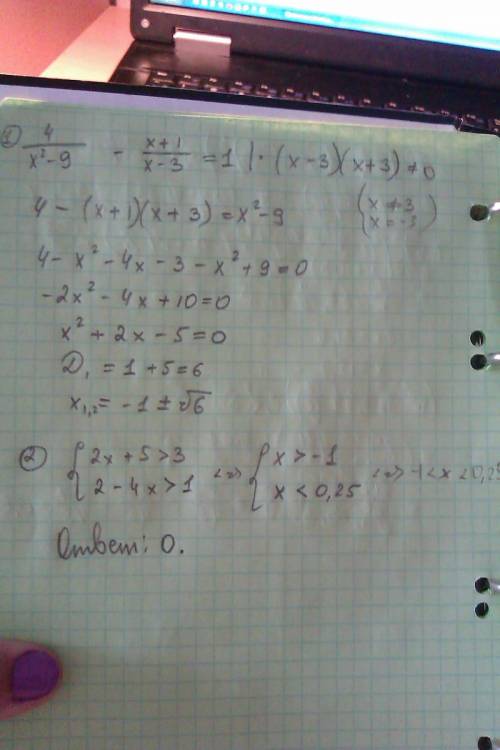 ① 4/(x²-9) - (x+1)/(x-3) = 1 | · (x-3)(x+3) ≠ 0
4 - (x+1)(x+3) = x²-9 { x ≠ 3
x = -3
4 - x² - 4x - 3 - x² + 9 = 0
-2x² - 4x + 10 = 0
x² + 2x - 5 = 0
D₁ = 1 + 5 = 6
x₁,₂ = -1 ± √6
② { 2x + 5 > 3 <=> { x > -1 <=> -1 < x < 0,25
2 - 4x > 1 x < 0,25
Ответ: 0.